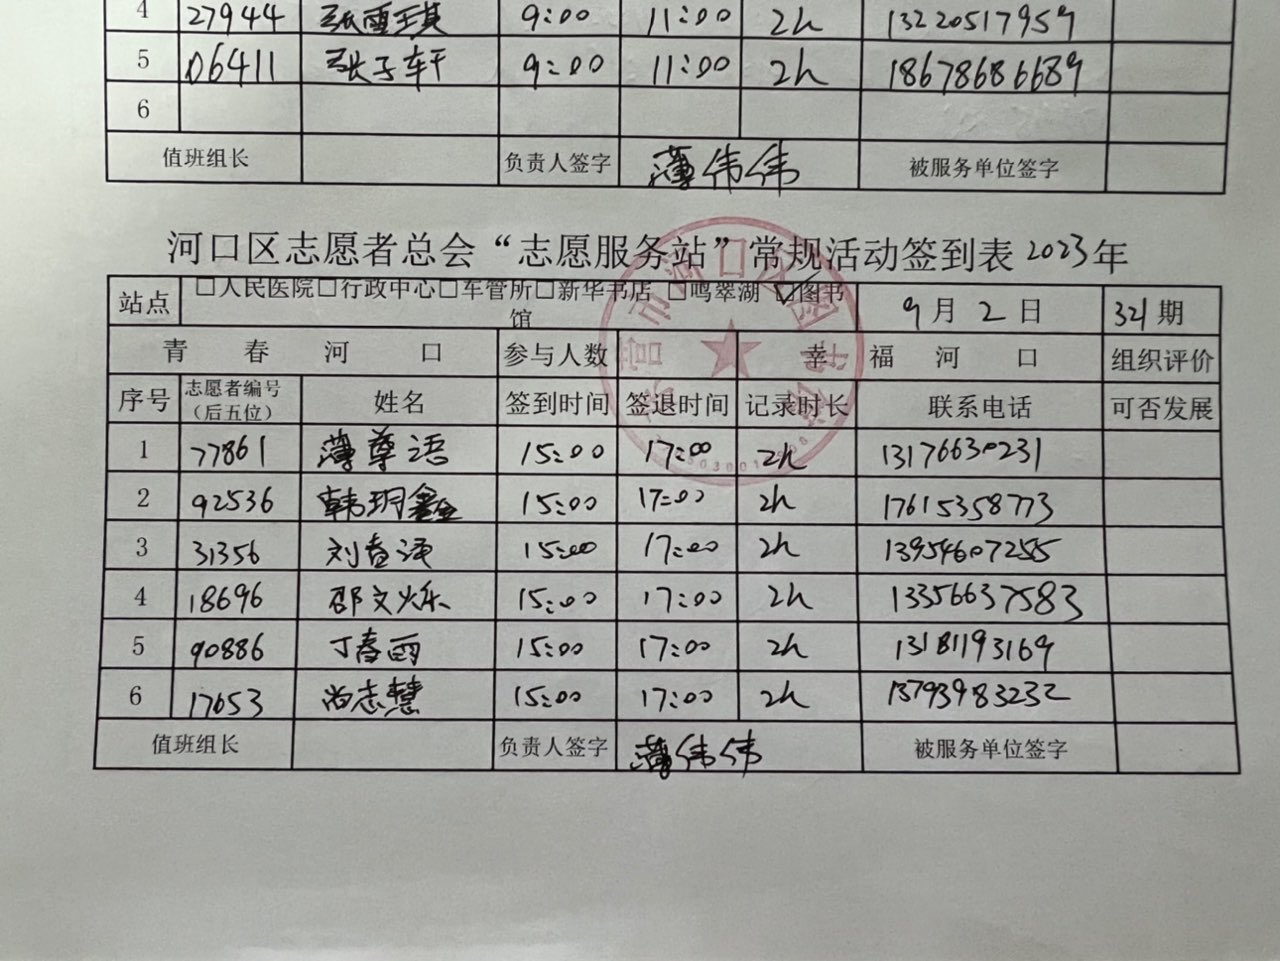 4 27944 张雪琪 9:00 11:00 2h 13220517959
5 06411 张子轩 9:00 11:00 2h 18678686689
6
值班组长 负责人签字 薄伟伟 被服务单位签字
河口区志愿者总会“志愿服务站”常规活动签到表2023年
站点 □人民医院□行政中心□车管所□新华书店 □鸣翠湖 ☑图书馆 9月2日 321期
青春河口 参与人数 幸福河口 组织评价
序号 志愿者编号（后五位） 姓名 签到时间 签退时间 记录时长 联系电话 可否发展
1 77861 薄尊语 15:00 17:00 2h 13176630231
2 92536 韩玥鑫 15:00 17:00 2h 17615358773
3 31356 刘春 15:00 17:00 2h 13954607255
4 18696 邵文烁 15:00 17:00 2h 13356637583
5 90886 丁春雨 15:00 17:00 2h 13181193169
6 17053 尚志慧 15:00 17:00 2h 13793983232
值班组长 负责人签字 薄伟伟 被服务单位签字